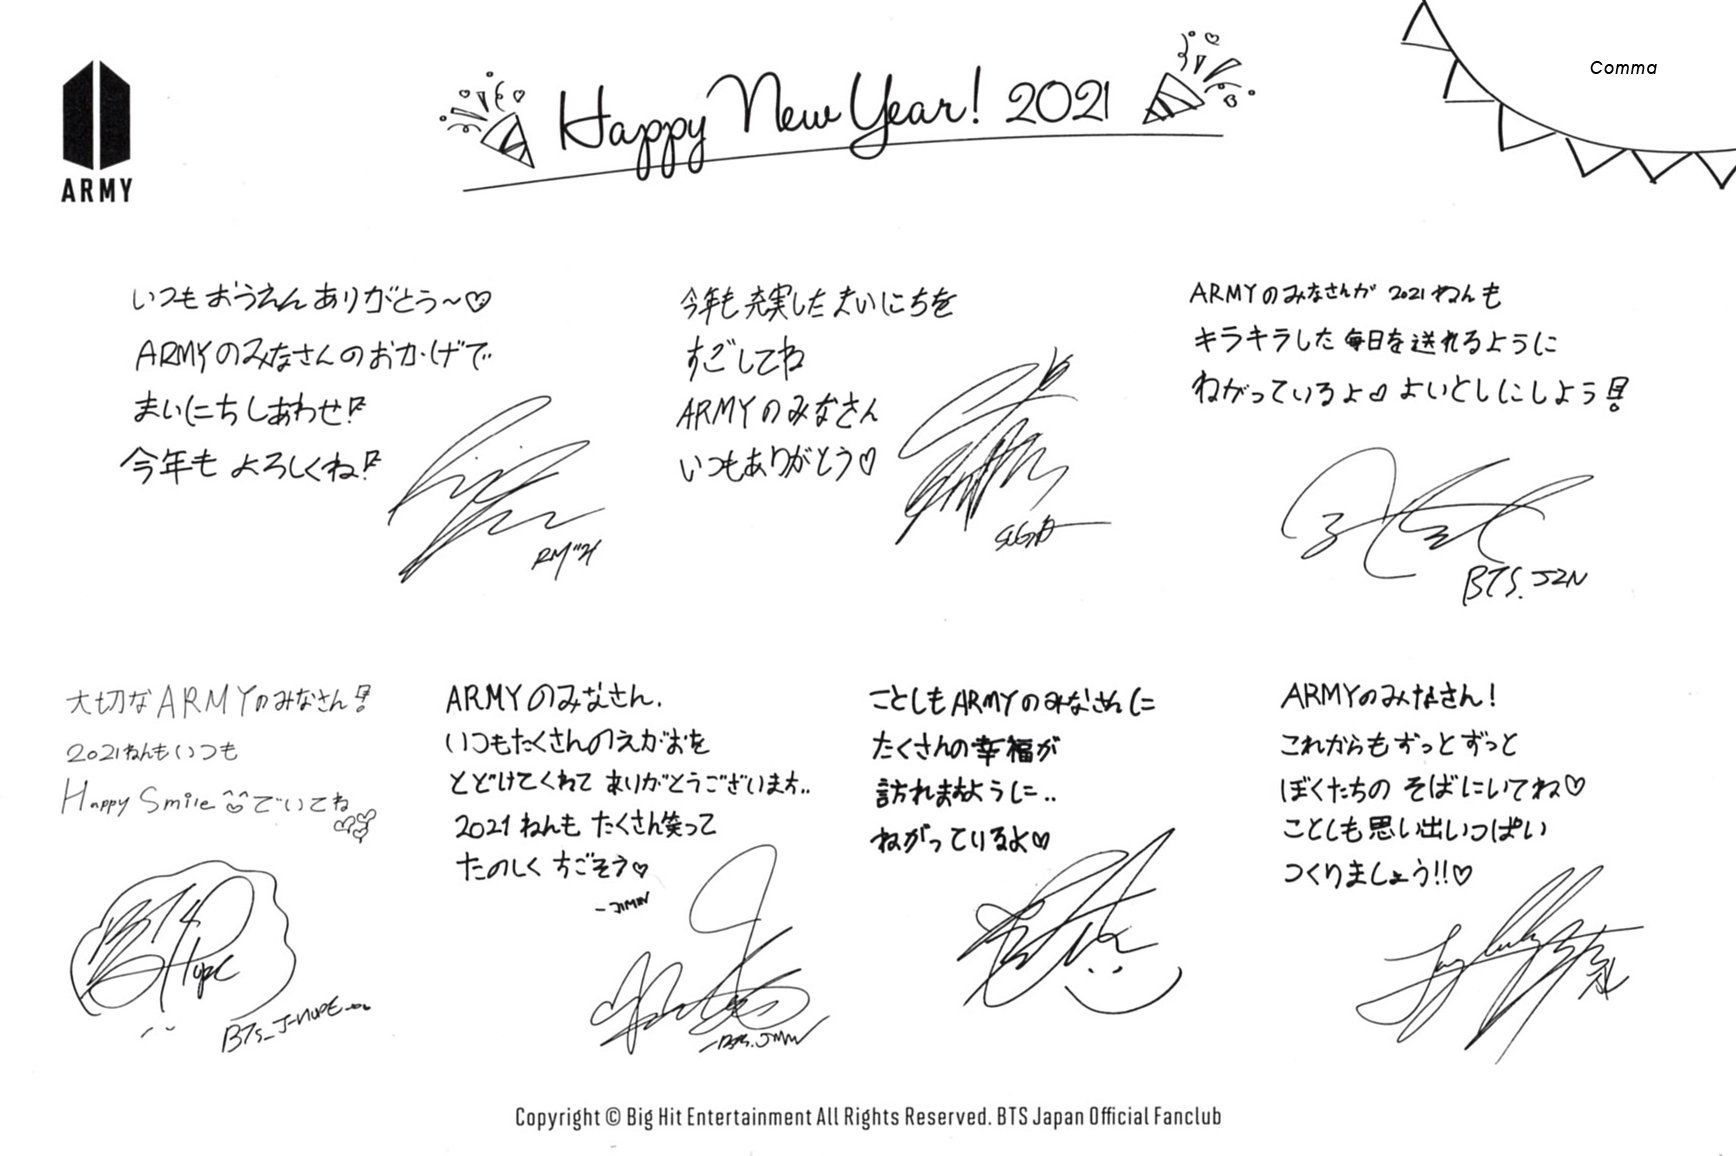 Comma
Happy New Year! 2021
ARMY
いつもおうえんありがとう〜♡
ARMYのみなさんのおかげで
まいにちしあわせ!
今年もよろしくね!
RM '21
今年も充実したまいにちを
すごしてね
ARMYのみなさん
いつもありがとう♡
SUGA
ARMYのみなさんが 2021ねんも
キラキラした毎日を送れるように
ねがっているよ♡よいとしにしよう!
BTS. JIN
大切なARMYのみなさん!
2021ねんもいつも
Happy Smile ^^でいてね
BTS
Hope
BTS_J-HOPE
ARMYのみなさん.
いつもたくさんのえがおを
とどけてくれて ありがとうございます..
2021ねんも たくさん笑って
たのしく すごそう♡
-JIMIN
-BTS. JIMIN
ことしもARMYのみなさんに
たくさんの幸福が
訪れますように..
ねがっているよ♡
ARMYのみなさん!
これからもずっとずっと
ぼくたちの そばにいてね♡
ことしも思い出いっぱい
つくりましょう!!♡
Copyright © Big Hit Entertainment All Rights Reserved. BTS Japan Official Fanclub